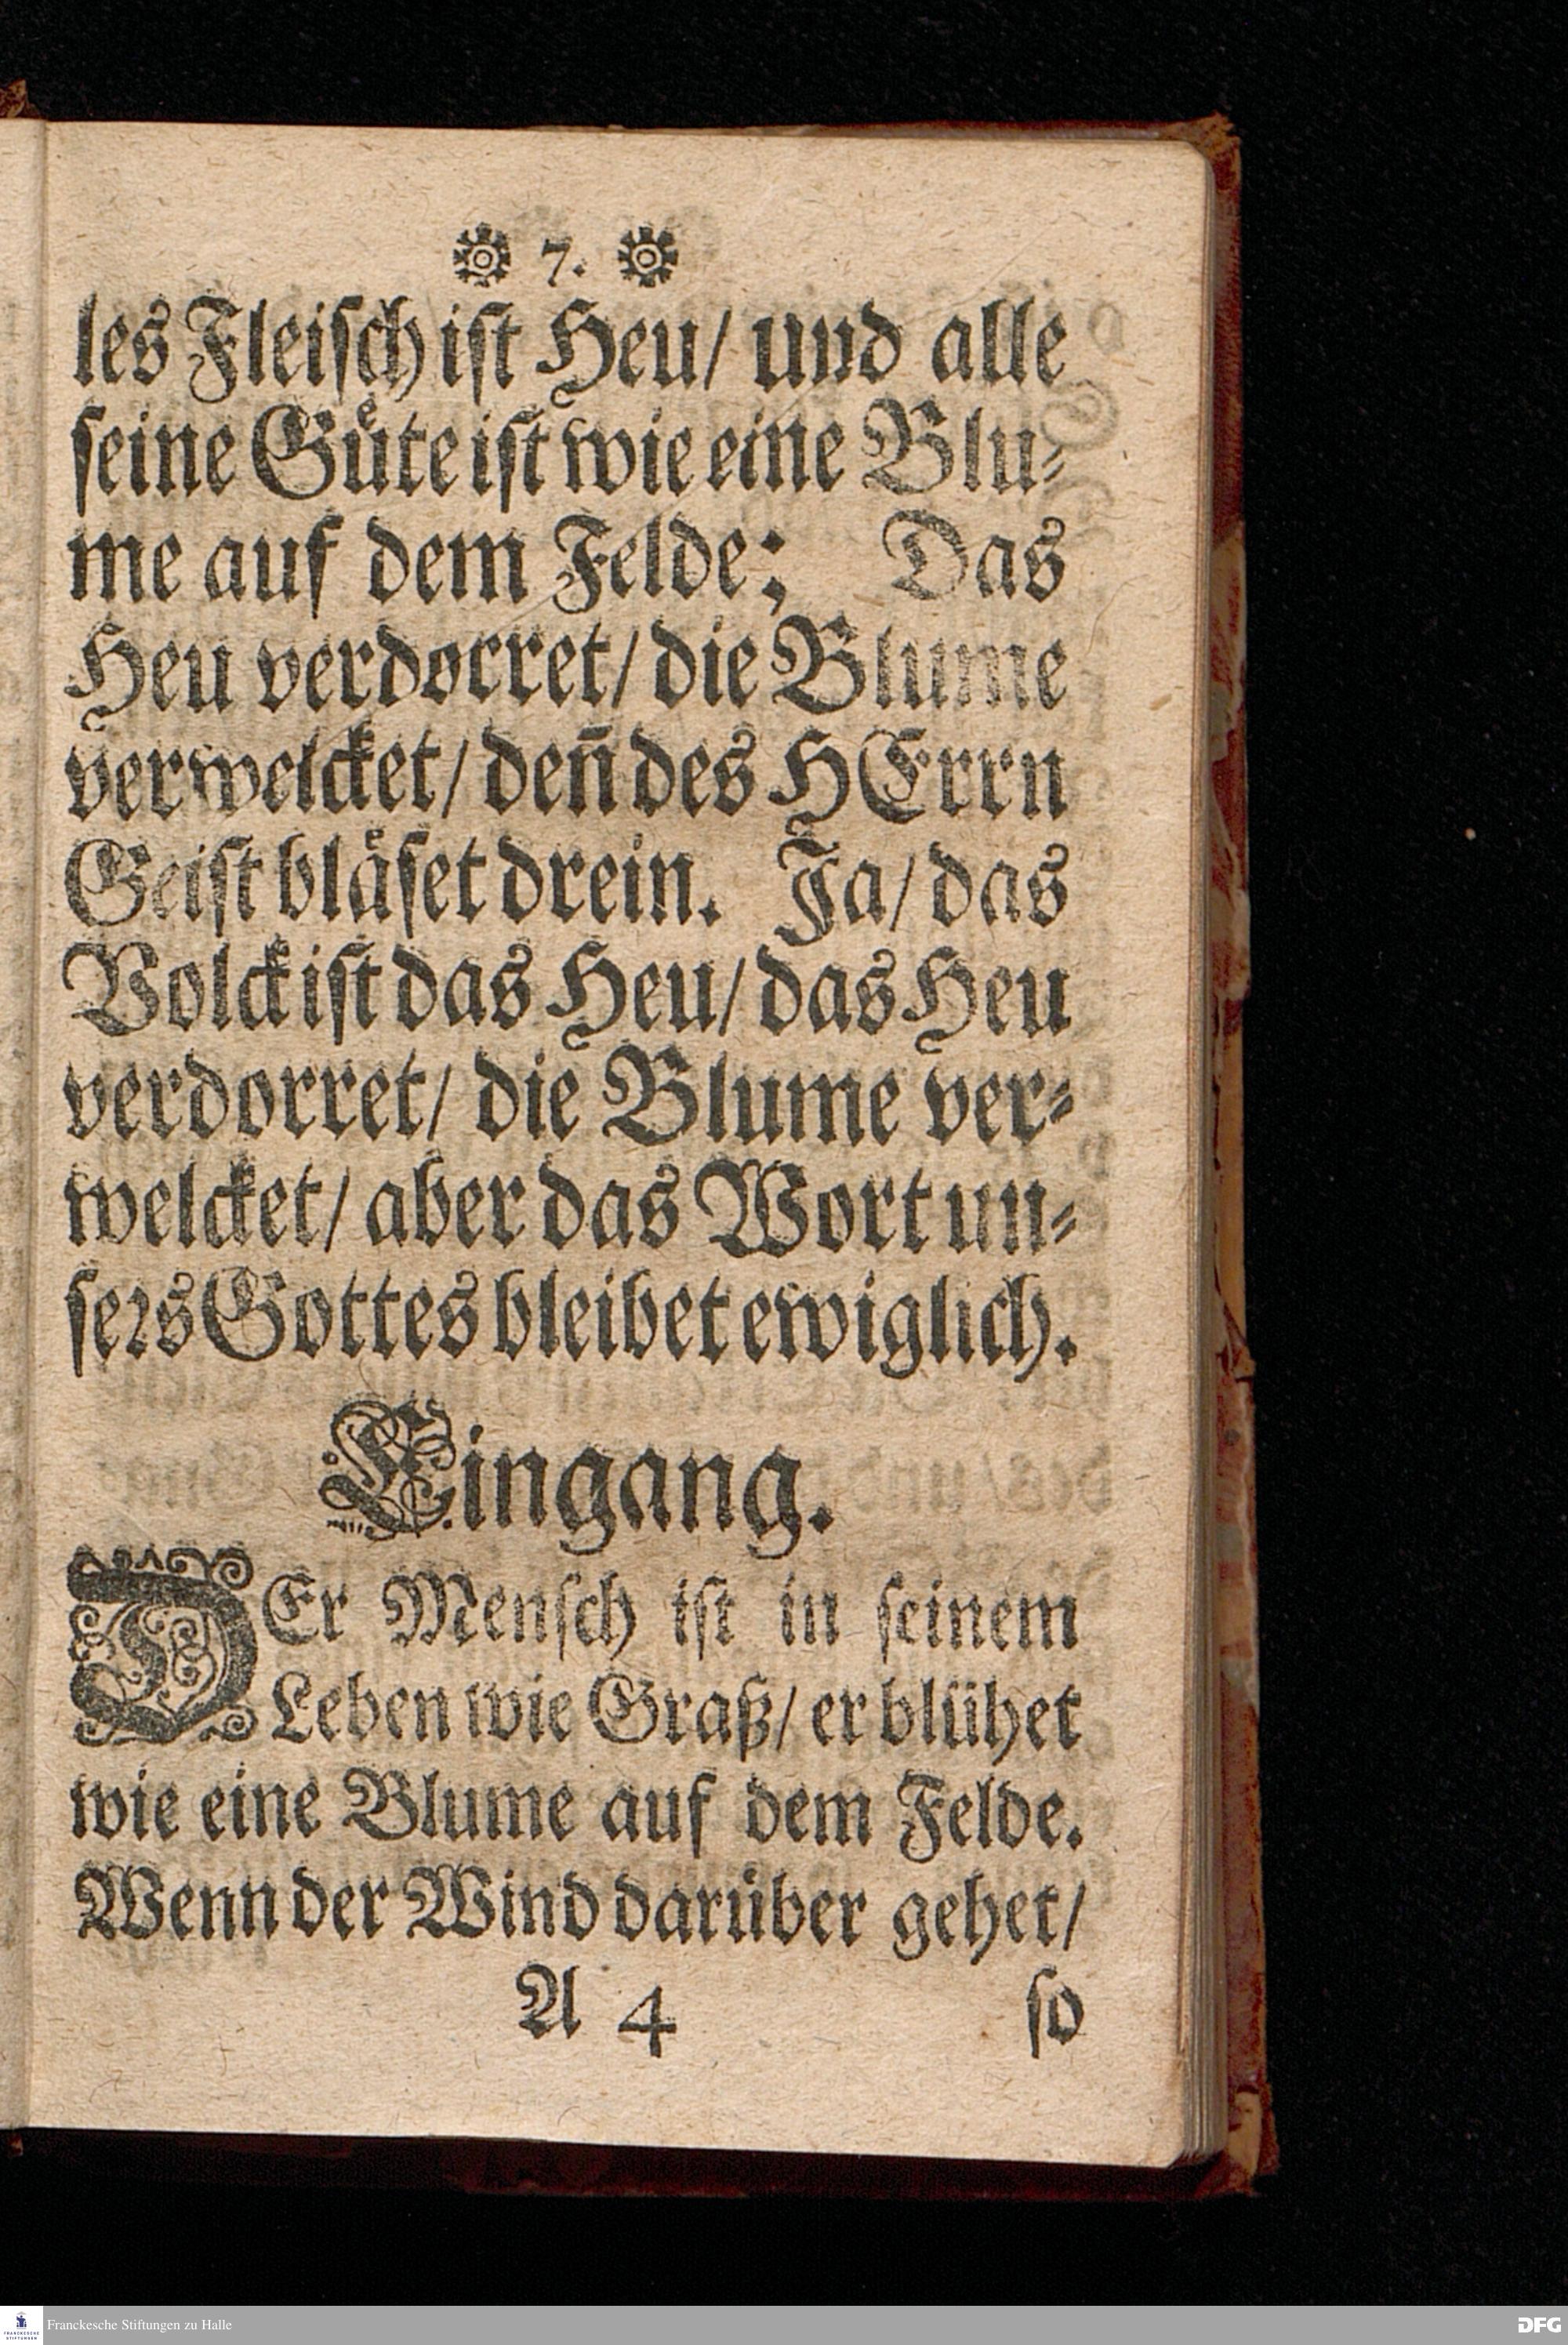 7.
les Fleiſch iſt Heu/ und alle
ſeine Guͤte iſt wie eine Blu⸗
me auf dem Felde; Das
Heu verdorret/ die Blume
verwelcket/ deñ des HErrn
Geiſt blaͤſet drein. Ja/ das
Volck iſt das Heu/ das Heu
verdorret/ die Blume ver⸗
welcket/ aber das Wort un⸗
ſers Gottes bleibet ewiglich.
Eingang.
DEr Menſch iſt in ſeinem
Leben wie Graß/ er blühet
wie eine Blume auf dem Felde.
Wenn der Wind darüber gehet/
A 4 ſo
FRANCKESCHE STIFTUNGEN
Franckesche Stiftungen zu Halle
DFG